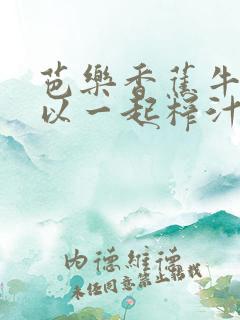 芭樂香蕉牛
以一起榨汁
内德維德
未经同意禁止转载